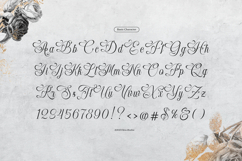 Aa Bb Cc Dd Ee Ff Gg Hh
Ii Jj Kk Ll Mm Nn Oo Pp Qq
Rr Ss Tt Uu Vv Ww Xx Yy Zz
1234567890!? <>@#$%&()